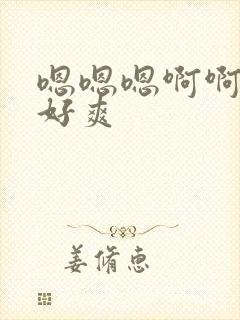 嗯嗯嗯啊啊
好爽
姜脩惠